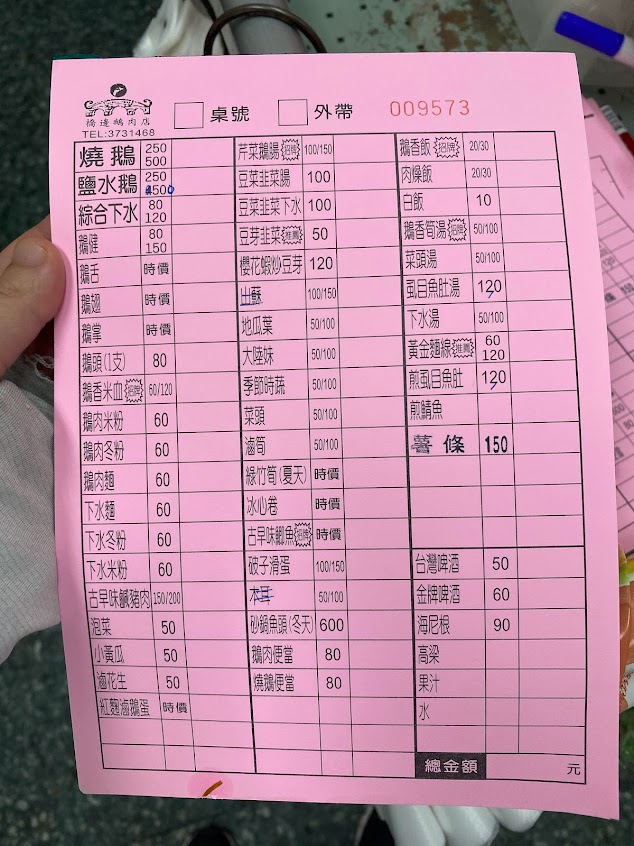 橋邊鵝肉店
TEL:3731468
桌號
外帶
009573
燒鵝 250 500
鹽水鵝 250 500
綜合下水 80 120
鵝腱 80 150
鵝舌 時價
鵝翅 時價
鵝掌 時價
鵝頭(1支) 80
鵝香米血 招牌 60/120
鵝肉米粉 60
鵝肉冬粉 60
鵝肉麵 60
下水麵 60
下水冬粉 60
下水米粉 60
古早味鹹豬肉 150/200
泡菜 50
小黃瓜 50
滷花生 50
紅麴滷鵝蛋 時價
芹菜鵝腸 招牌 100/150
豆菜韭菜腸 100
豆菜韭菜下水 100
豆芽韭菜 推薦 50
櫻花蝦炒豆芽 120
山蘇 100/150
地瓜葉 50/100
大陸妹 50/100
季節時蔬 50/100
菜頭 50/100
滷筍 50/100
綠竹筍(夏天) 時價
冰心卷 時價
古早味鯽魚 招牌 時價
破子滑蛋 100/150
木耳 50/100
砂鍋魚頭(冬天) 600
鵝肉便當 80
燒鵝便當 80
鵝香飯 招牌 20/30
肉燥飯 20/30
白飯 10
鵝香筍湯 招牌 50/100
菜頭湯 50/100
虱目魚肚湯 120
下水湯 50/100
黃金麵線 推薦 60 120
煎虱目魚肚 120
煎鯖魚
薯條 150
台灣啤酒 50
金牌啤酒 60
海尼根 90
高梁
果汁
水
總金額 元